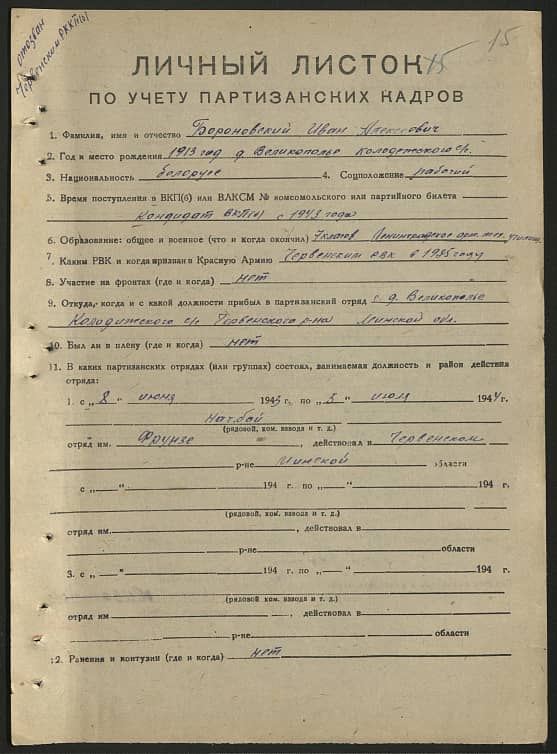 отозван
Червенским РККП(б)
15 15
ЛИЧНЫЙ ЛИСТОК
ПО УЧЕТУ ПАРТИЗАНСКИХ КАДРОВ
1. Фамилия, имя и отчество Бароновский Иван Алексеевич
2. Год и место рождения 1913 год д. Великополье Колодежского с/с.
3. Национальность белорусс 4. Соцположение рабочий
5. Время поступления в ВКП(б) или ВЛКСМ № комсомольского или партийного билета
Кандидат ВКП(б) с 1943 года
6. Образование: общее и военное (что и когда окончил) 7 классов Ленинградское арт. тех. училищ.
7. Каким РВК и когда призван в Красную Армию Червенским рвк в 1935 году
8. Участие на фронтах (где и когда) нет
9. Откуда, когда и с какой должности прибыл в партизанский отряд с д. Великополье
Колодитского с/с Червенского р-на Минской обл.
10. Был ли в плену (где и когда) нет
11. В каких партизанских отрядах (или группах) состоял, занимаемая должность и район действия
отряда:
1. с „8“ июня 1943 г. по „5“ июля 1944 г.
Нач. бой
(рядовой, ком. взвода и т. д.)
отряд им. Фрунзе, действовал в Червенском
р-не Минской области
с „ “ 194 г. по „ “ 194 г.
(рядовой, ком. взвода и т. д.)
отряд им. , действовал в
р-не области
3. с „ “ 194 г. по „ “ 194 г.
(рядовой, ком. взвода и т. д.)
отряд им , действовал в
р-не области
12. Ранения и контузии (где и когда) нет